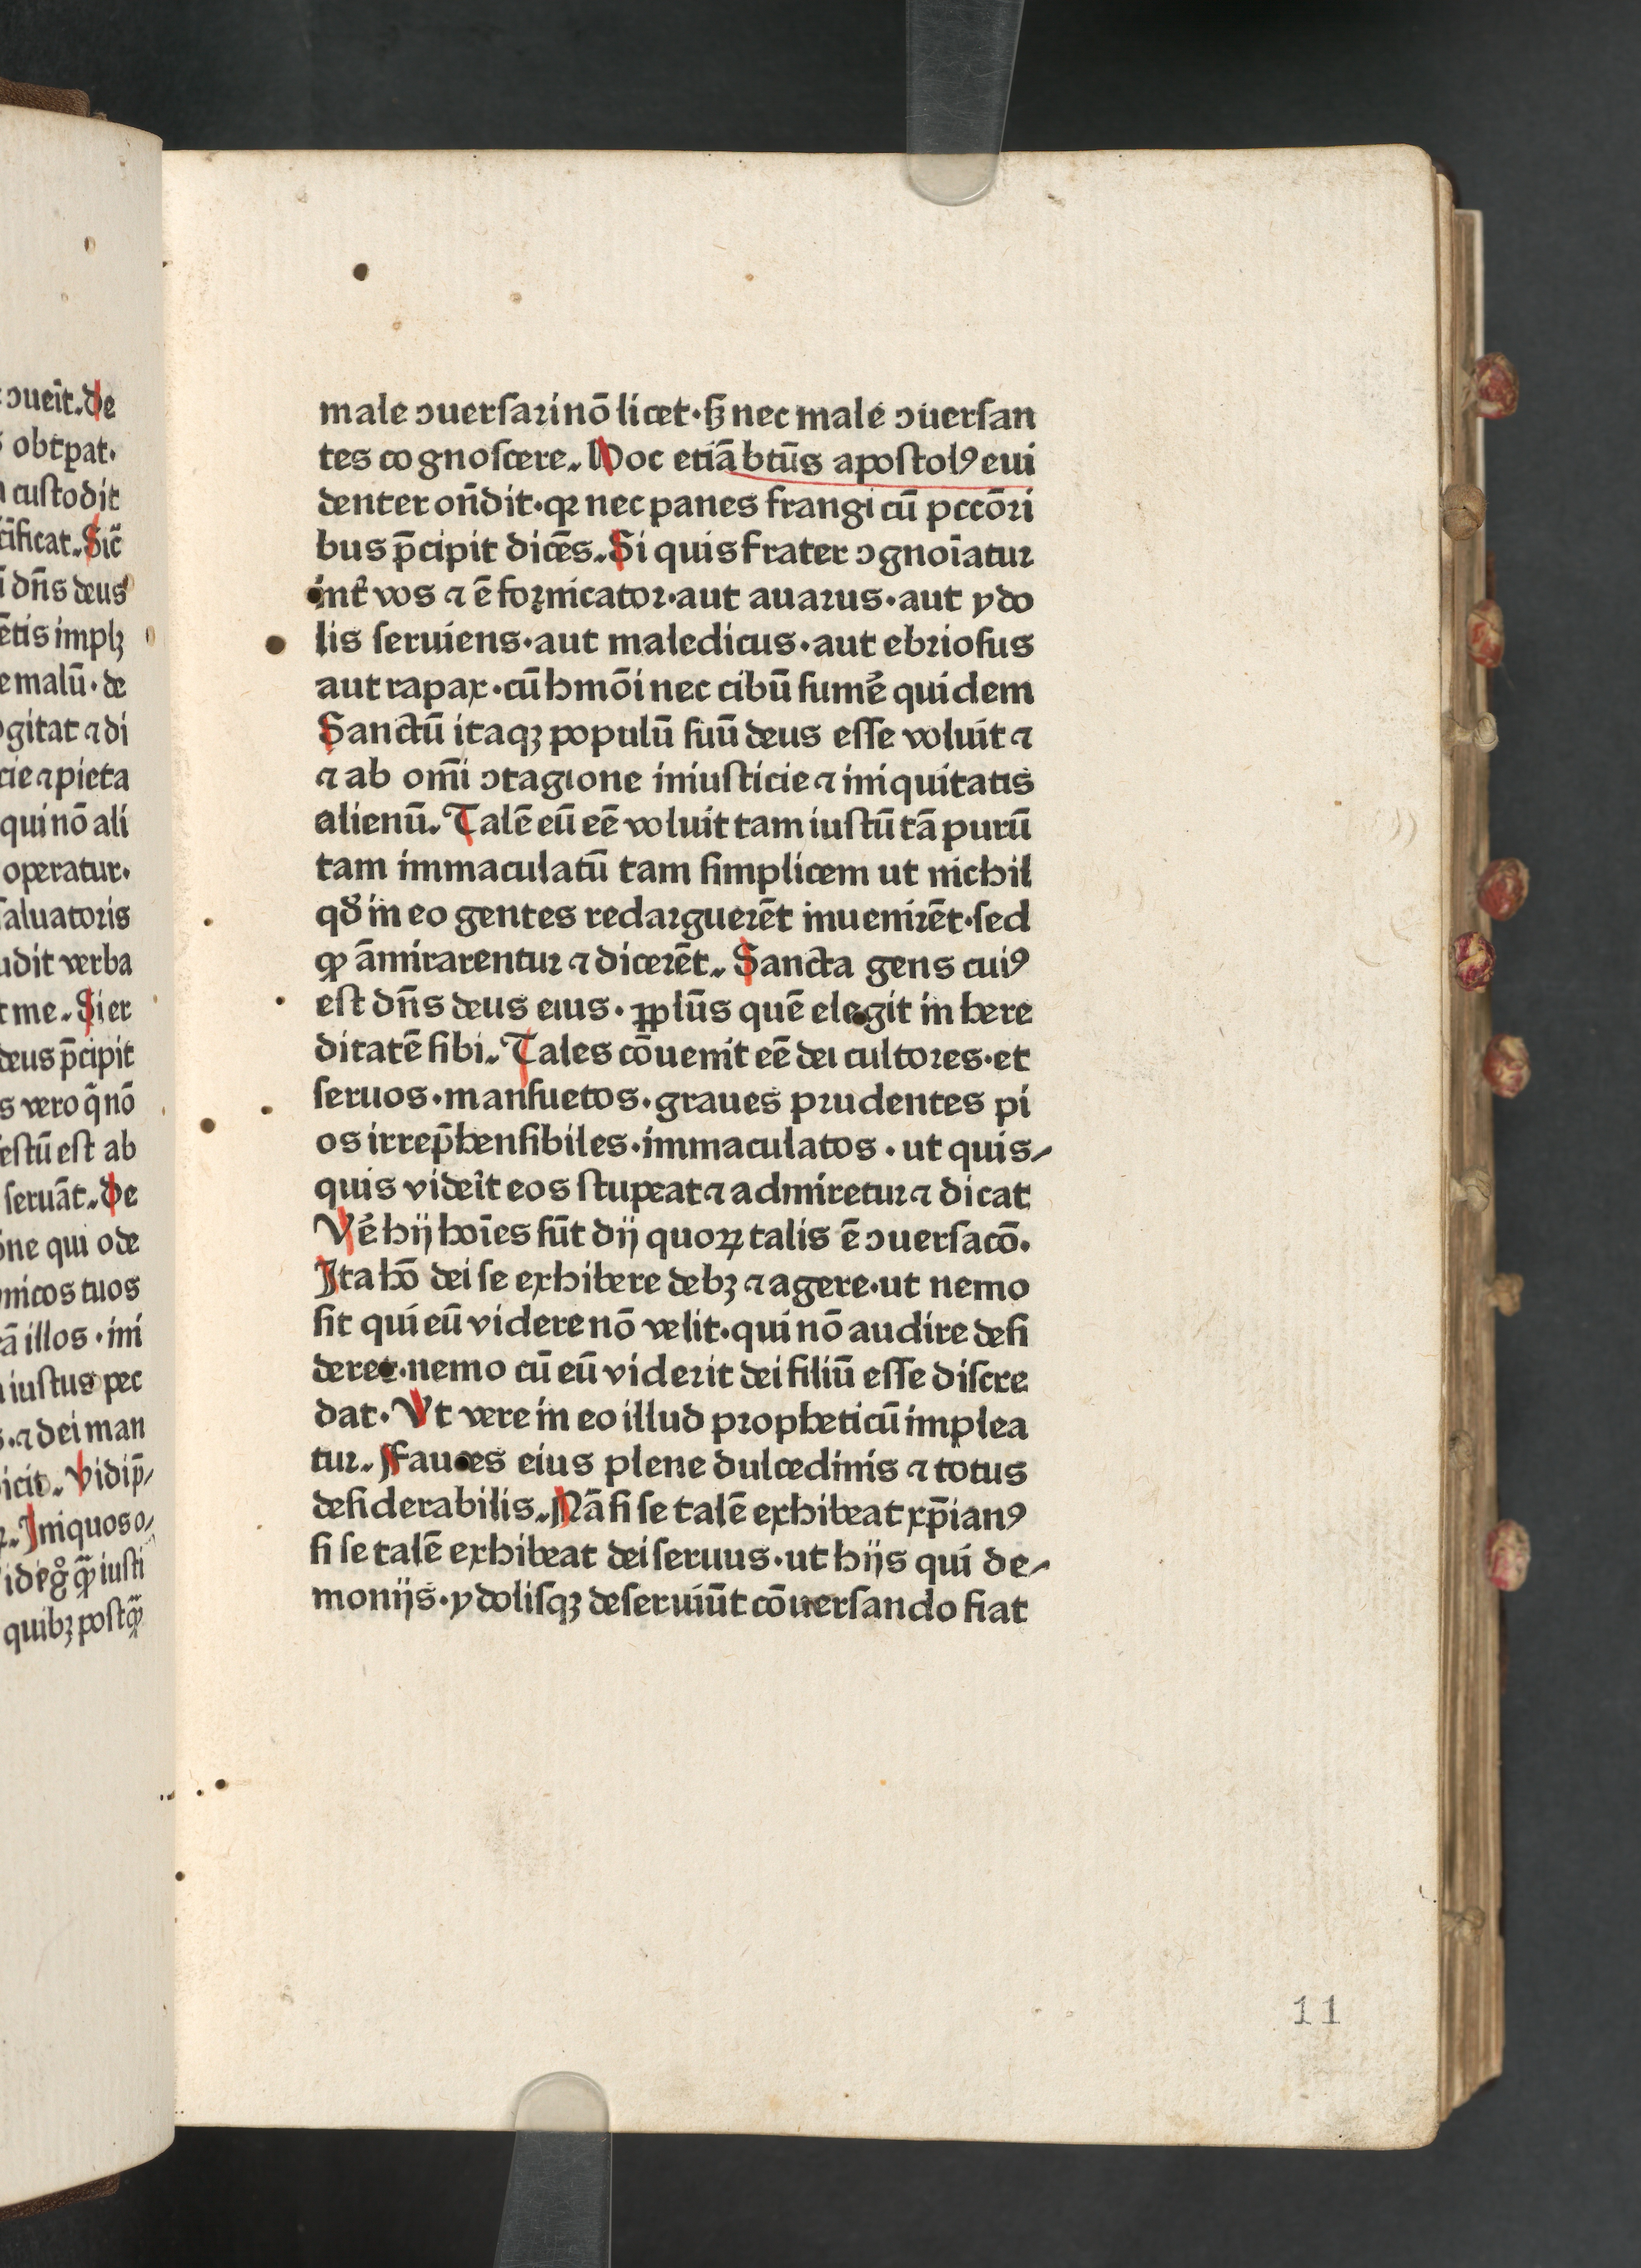 ↄueĩt. De
obtꝑat.
custodit
cĩficat. Sic̃
dñs deus
ẽtis implꝫ
e malũ · de
ogitat ⁊ di
cie ⁊ pieta
qui nõ ali
operatur.
saluatoris
udit verba
t me. Si er
deus p̃cipit
s vero q̃ nõ
estũ est ab
seruãt. De
õne qui ode
micos tuos
ã illos · ini
iustus pec
s. ⁊ dei man
icit. Vidi p̃⸗
Iniquos o⸗
quibꝫ postꝙ̃
male ↄuersari nõ licet · sꝫ nec male ↄuersan
tes cognoscere. Hoc etiã btũs apostolꝰ eui
denter oñdit · qꝛ nec panes frangi cũ pccõri
bus p̃cipit dicẽs. Si quis frater ↄgnoĩatur
int̃ vos ⁊ ẽ fornicator · aut auarus · aut ydo
lis seruiens · aut maledicus · aut ebriosus
aut rapax · cũ hmõi nec cibũ sumẽ quidem
Sanctũ itaqꝫ populũ suũ deus esse voluit ⁊
⁊ ab om̃i ↄtagione iniusticie ⁊ iniquitatis
alienũ. Talẽ eũ eẽ voluit tam iustũ tã purũ
tam immaculatũ tam simplicem ut nichil
qđ in eo gentes redarguerẽt inuenirẽt · sed
ꝙ ãmirarentur ⁊ dicerẽt. Sancta gens cuiꝰ
est dñs deus eius · pplũs quẽ elegit in here
ditatẽ sibi. Tales cõuenit eẽ dei cultores · et
seruos · mansuetos · graues prudentes pi
os irrep̃hensibiles · immaculatos · ut quis⸗
quis videĩt eos stupeat ⁊ admiretur ⁊ dicat
Vẽ hij hoĩes sũt dij quoꝝ talis ẽ ↄuersacõ.
Ita hõ dei se exhibere debꝫ ⁊ agere · ut nemo
sit qui eũ videre nõ velit · qui nõ audire desi
deret · nemo cũ eũ viderit dei filiũ esse discre
dat · Vt vere in eo illud propheticũ implea
tur. Fauces eius plene dulcedinis ⁊ totus
desiderabilis. Nã si se talẽ exhibeat xp̃ianꝰ
si se talẽ exhibeat dei seruus · ut hijs qui de⸗
monijs · ydolisqꝫ deseruiũt cõuersando fiat
11